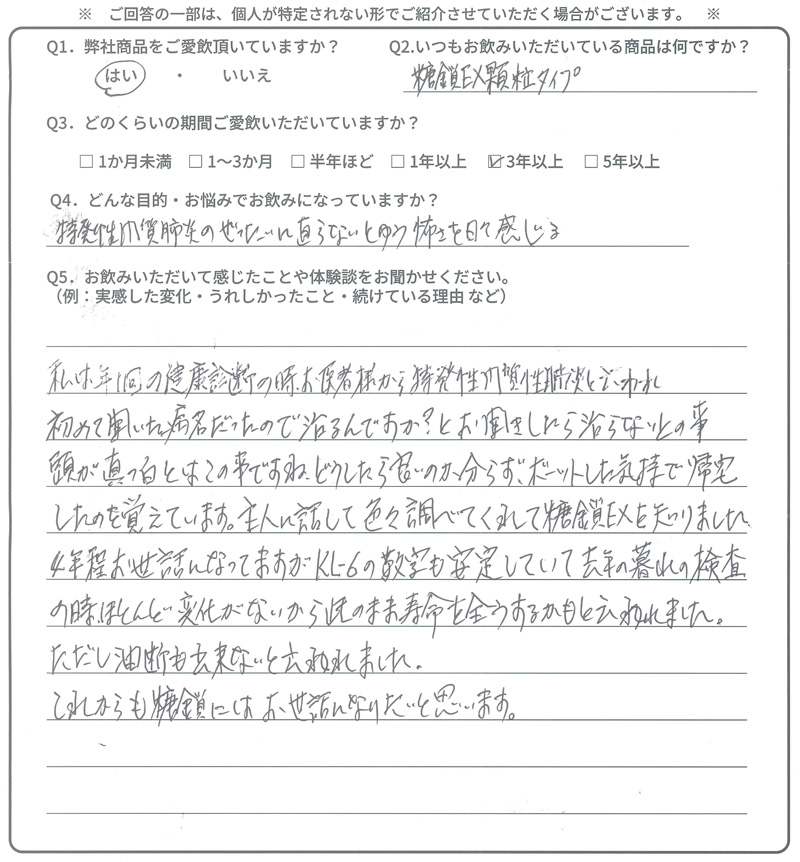 ※ ご回答の一部は、個人が特定されない形でご紹介させていただく場合がございます。 ※
Q1. 弊社商品をご愛飲頂いていますか？ Q2.いつもお飲みいただいている商品は何ですか？
はい ・ いいえ 糖鎖EX顆粒タイプ
Q3. どのくらいの期間ご愛飲いただいていますか？
□ 1か月未満 □ 1～3か月 □ 半年ほど □ 1年以上 ☑ 3年以上 □ 5年以上
Q4. どんな目的・お悩みでお飲みになっていますか？
特発性間質肺炎のぜったいに直らないとゆう怖さを日々感じる
Q5. お飲みいただいて感じたことや体験談をお聞かせください。
（例：実感した変化・うれしかったこと・続けている理由 など）
私は年1回の健康診断の時、お医者様から特発性間質性肺炎と云われ
初めて聞いた病名だったので治るんですか？とお聞きしたら治らないとの事
頭が真っ白とはこの事ですね、どうしたら良いのか分らず、ボーットした気持で帰宅
したのを覚えています。主人に話して色々調べてくれて糖鎖EXを知りました、
4年程お世話になってますがKL-6の数字も安定していて去年の暮れの検査
の時、ほとんど変化がないから此のまま寿命を全うするかもと云われました。
ただし油断も出来ないと云われました。
これからも糖鎖にはお世話になりたいと思います。